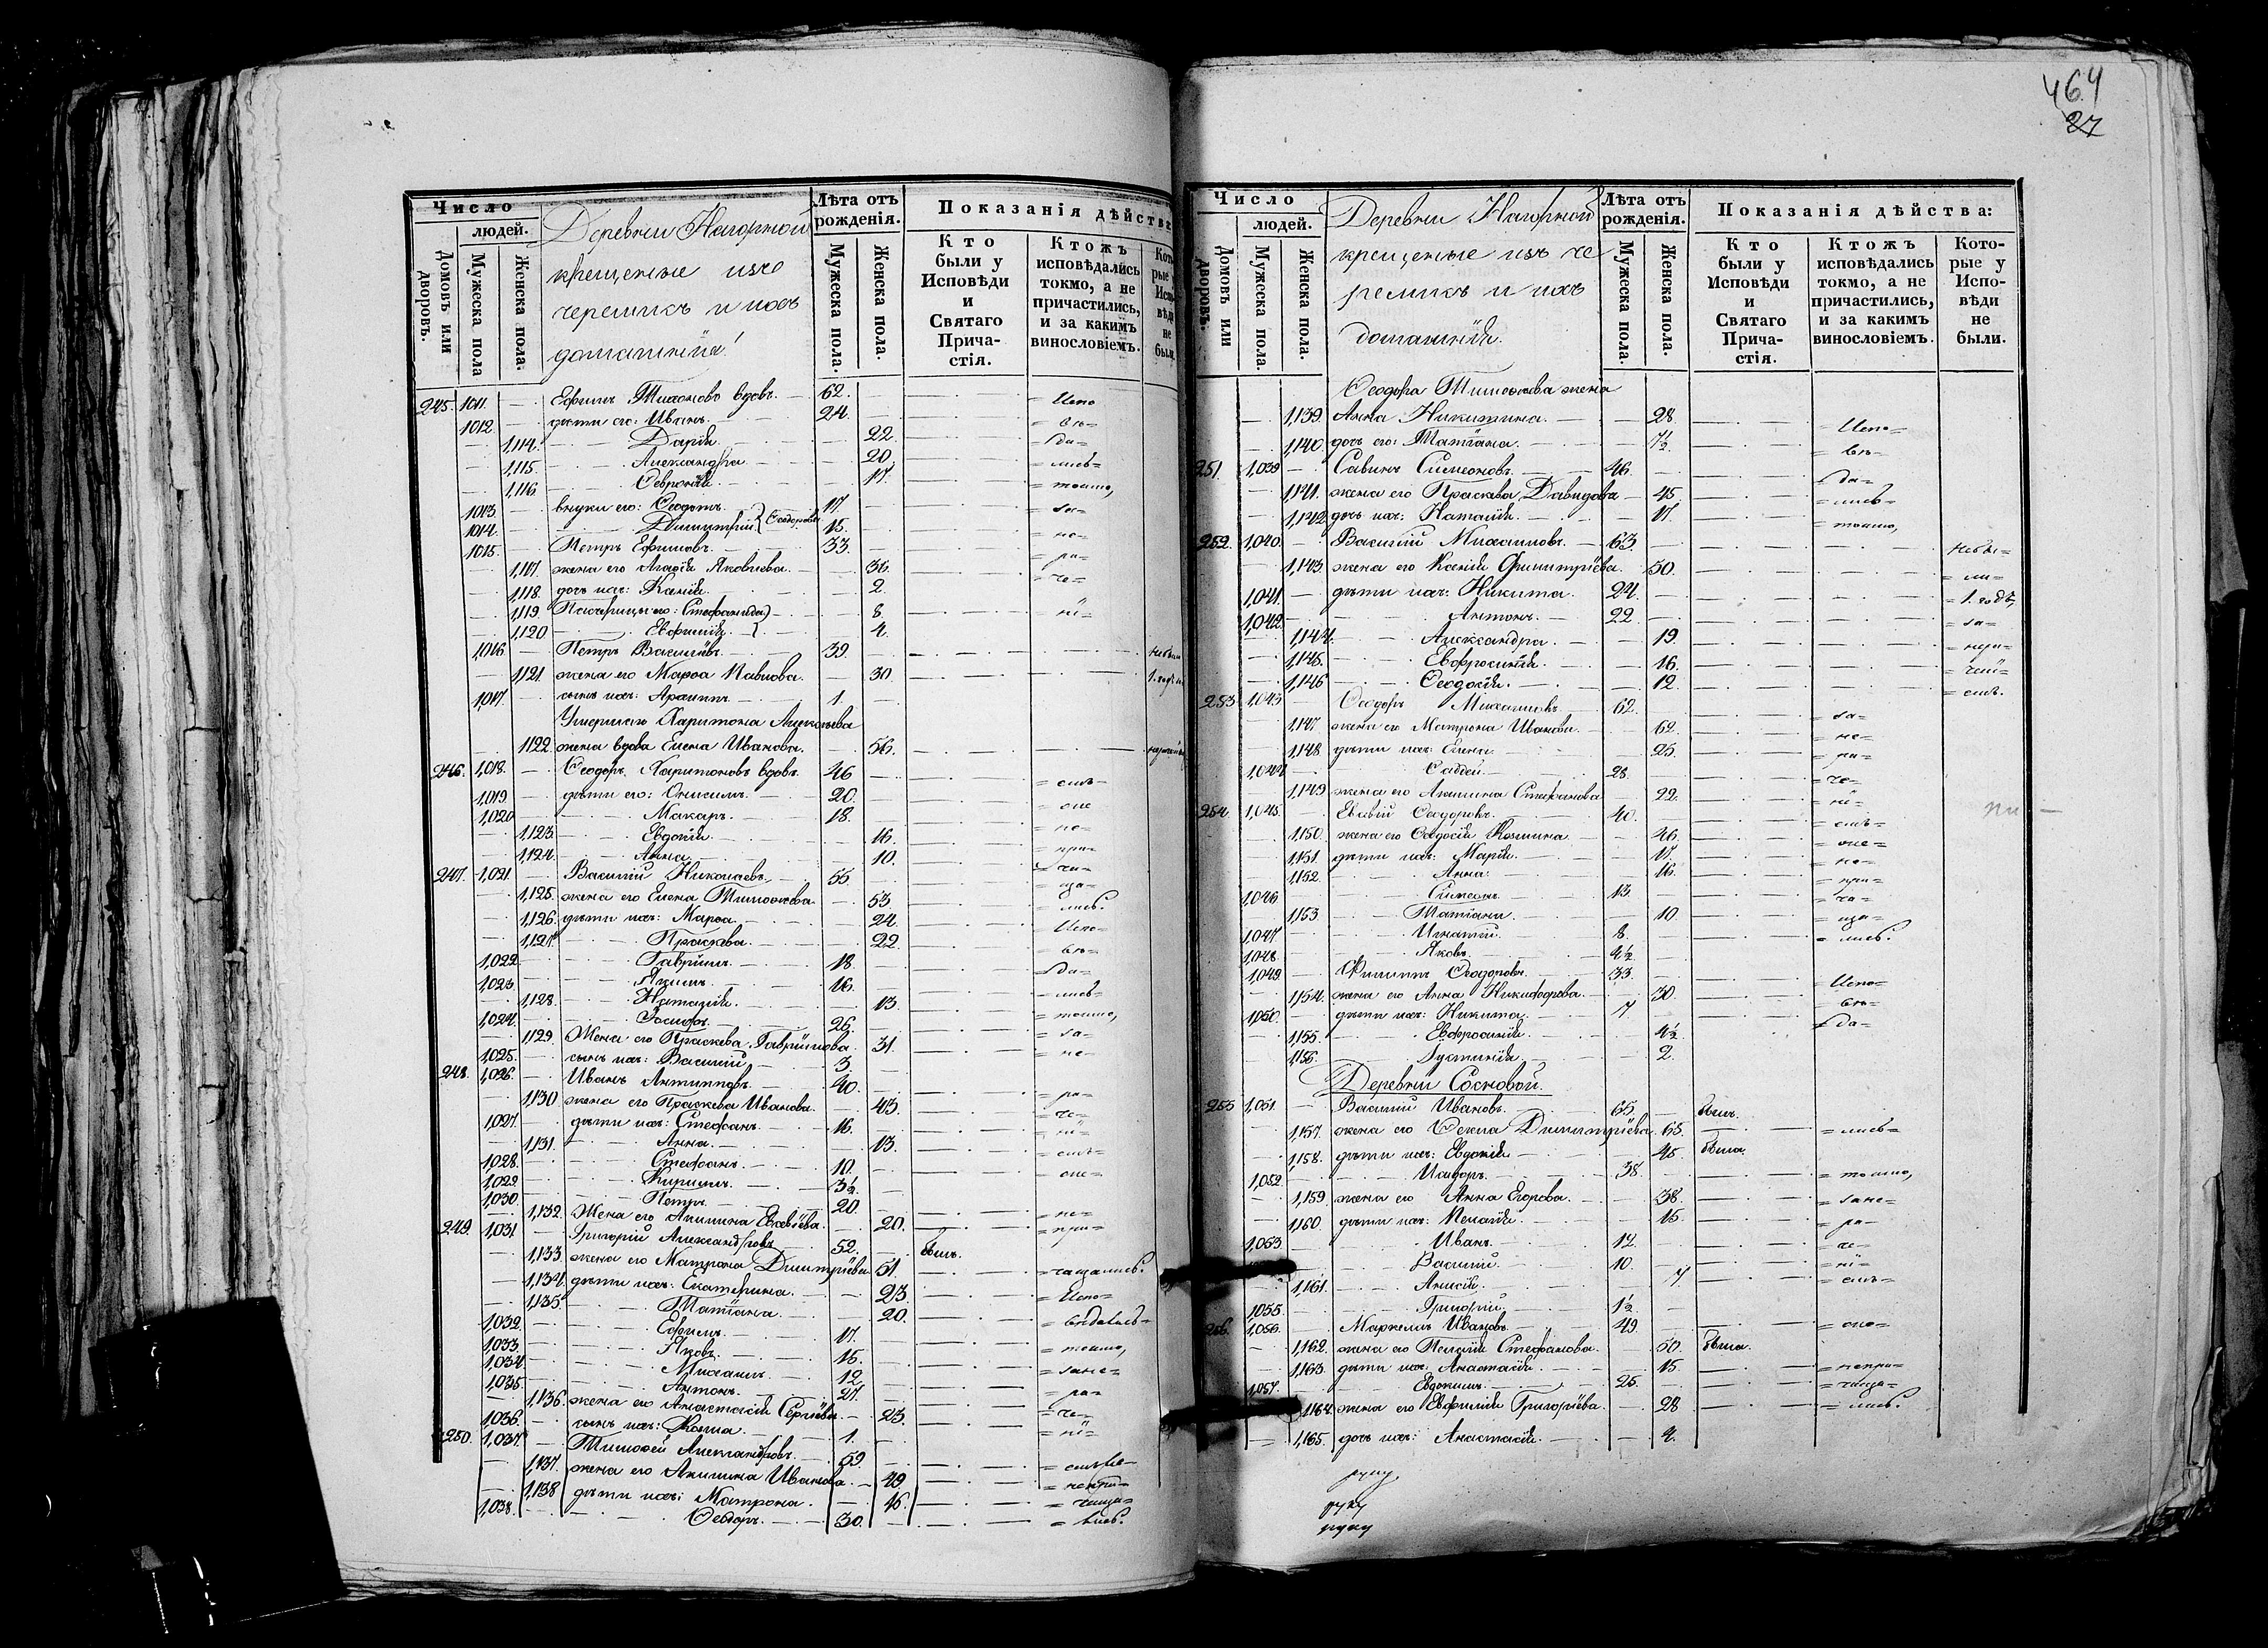 464
27
Число
людей.
Домовъ или дворовъ.
Мужеска пола
Женска пола.
Деревни Нагорной
крещеные изъ
черемисъ и ихъ
домашнія
Лѣта отъ рожденія.
Мужеска пола.
Женска пола.
Показанія дѣйства
Кто были у Исповѣди и Святаго Причастія.
Ктожъ исповѣдались токмо, а не причастились, и за какимъ винословіемъ.
245. 1011. — Ефимъ Тихоновъ вдовъ. — 62. — Испо
1012 — дѣти его: Иванъ. 24. — = вѣ=
— 1,114. — Дарія 22. = да=
— 1,115. — Александра 20. = лись=
— 1,116. — Февронія 17. = токмо,
1013. — внуки его: Ѳедотъ. 17. = за=
1014. — Димитрій. } Ѳеодоровы 15. = не=
1015. — Петръ Ефимовъ. 33. = ра=
— 1,117. жена его Агафія Яковлева. — 36. = че=
— 1,118. дочь ихъ: Ксенія. 2.
— 1,119. Падчерицы его: Стефанида) — 8. = ні=
1,120 — Евфимія. } 4.
1,016. — Петръ Васильевъ. 39. — небыли
— 1121 жена его Марѳа Павлова. — 30.
1,017. сынъ ихъ: Архиппъ. 1.
Умершаго Харитона Алексѣева
1122. жена вдова Елена Иванова. — 56.
246. 1,018. — Ѳеодоръ Харитоновъ вдовъ. 46 — = емъ=
1,019 — дѣти его: Онисимъ. 20. = оне
1,020 — Макаръ. 18. = не=
1,123. — Евдокія. 16. = при=
— 1,124. — Анна. 10. = ча=
247. 1,021 — Василій Николаевъ. 55. = ща=
— 1,125. жена его Елена Тимоѳеева. — 53 = лись.
— 1,126. дѣти ихъ: Марѳа. 24. = Испо=
— 1,127. — Параскева. 22. = вѣ=
1,022. — Гавріилъ. 18. = да=
1,023. — Якимъ. 16. = лись=
— 1,128. — Наталія. 13. = токмо,
1,024. — Іосифъ. 26. = за=
— 1129. Жена его Праскева Гавріилова. 31. = не=
1,025. — сынъ ихъ: Василій. 3.
248. 1,026. — Иванъ Антиповъ. 40. = ра=
— 1,130 жена его Праскева Иванова. — 43. = че=
1,027. — дѣти ихъ: Стефанъ. 16. = ні=
— 1,131. — Анна. 13. = емъ=
1,028. — Стефанъ. 10. = оне=
1,029. — Кириллъ. 3½
1,030. — Петръ. 20. = не=
— 1,132. Жена его Акилина Евсевіева. — 20. = при=
249. 1,031. — Григорій Александровъ 52. — былъ.
— 1,133 жена его Матрона Димитріева 51. = чащались.
— 1,134. дѣти ихъ: Екатерина. — 23. = Испо=
— 1,135. — Татіана. 20. = вѣдались=
1,032. — Ефимъ. 17. = токмо,
1,033. — Яковъ. 15. = зане=
1,034. — Михаилъ. 12 = ра=
1,035. — Антонъ. 27. = че=
— 1,136. жена его Анастасія Сергіева. — 23. = ні=
1,036. — сынъ ихъ: Косма. 1.
250. 1,037. — Тимоѳей Александровъ. 59
— 1,137. жена его Акилина Иванова. — 49. = непри=
— 1,138 дѣти ихъ: Матрона. — 16. = чаща=
1,038. — Ѳеодоръ. 30. = лись.
Число
людей.
Домовъ или дворовъ.
Мужеска пола.
Женска пола.
Деревни Нагорной
крещеные изъ че
ремисъ и ихъ
домашнія.
Лѣта отъ рожденія.
Мужеска пола.
Женска пола.
Показанія дѣйства:
Кто были у Исповѣди и Святаго Причастія.
Ктожъ исповѣдались токмо, а не причастились, и за какимъ винословіемъ.
Которые у Исповѣди не были.
Ѳеодора Тимоѳеева жена
1,139 Анна Никитина. — 28. = Испо=
1,140 дочь его: Татіана. 7½. = вѣ=
251. 1,039 — Савинъ Симеоновъ. 46. = да=
1,141. жена его Праскева Давидова — 45. = лись=
1,142 дочь ихъ: Наталія. 17. = токмо,
252. 1,040. — Василій Михаиловъ. — 63. — небы=
— 1,143. жена его Ксенія Димитріева. 50. = ли=
1,041. — дѣти ихъ: Никита. 24. = 1. годъ,
1,042 — Антонъ. 22. = за=
1,144. — Александра. 19. = нера=
1,145. — Евфросинія. 16.
1,146 — Ѳеодосія. 12. = емъ.
253 1,043 — Ѳеодоръ Михаиловъ 62. = за=
1,147. жена его Матрона Иванова. 62. = не=
1,148. дѣти ихъ: Елена. 25. = ра=
1,044 — Ѳаддей. 28. = че=
1,149 жена его Акилина Стефанова 22. = ні=
254. 1,045. — Евсевій Ѳеодоровъ. 40. = емъ=
1,150. жена его Ѳеодосія Козмина. 46. = оне=
1,151. дѣти ихъ: Марія. 17. = не=
1,152. — Анна. 16. = при=
1,046 — Симеонъ. 13. = ча=
1,153 — Татіана. 10. = ща=
1,047. — Игнатій. 8. = лись.
1,048. — Яковъ. 4½
1,049 — Филиппъ Ѳеодоровъ. 33. = Испо=
1,154. жена его Анна Никифорова. 30. = вѣ=
1,050. — дѣти ихъ: Никита. 7 = да=
1,155. — Евфросинія. 4½
1,156. — Іустинія. 2.
Деревни Сосновой.
255 1,051. — Василій Ивановъ. 65. — былъ.
1,157. жена его Ѳекла Димитріева. 65. = лись=
1,158. дѣти ихъ: Евдокія 45. была.
1,052. — Исидоръ. 38. = токмо,
1,159 жена его Анна Егорова. 38. = зане=
1,160 дѣти ихъ: Пелагія. 15. = ра=
1,053 — Иванъ. 12. = че=
— Василій. 10. = ні=
1,161. — Анисія. 7. = емъ=
1,055. — Григорій. 1½
256. 1,056. — Маркеллъ Ивановъ. 49. = оно=
1,162. жена его Пелагія Стефанова. 50. была.
1,163. дѣти ихъ: Анастасія. 15. = непри=
1,057. — Евдокимъ. 25. = чаща=
1,164. жена его Евфимія Григоріева. 28 = лись.
1,165. дочь ихъ: Анастасія. 4.
руку
руку